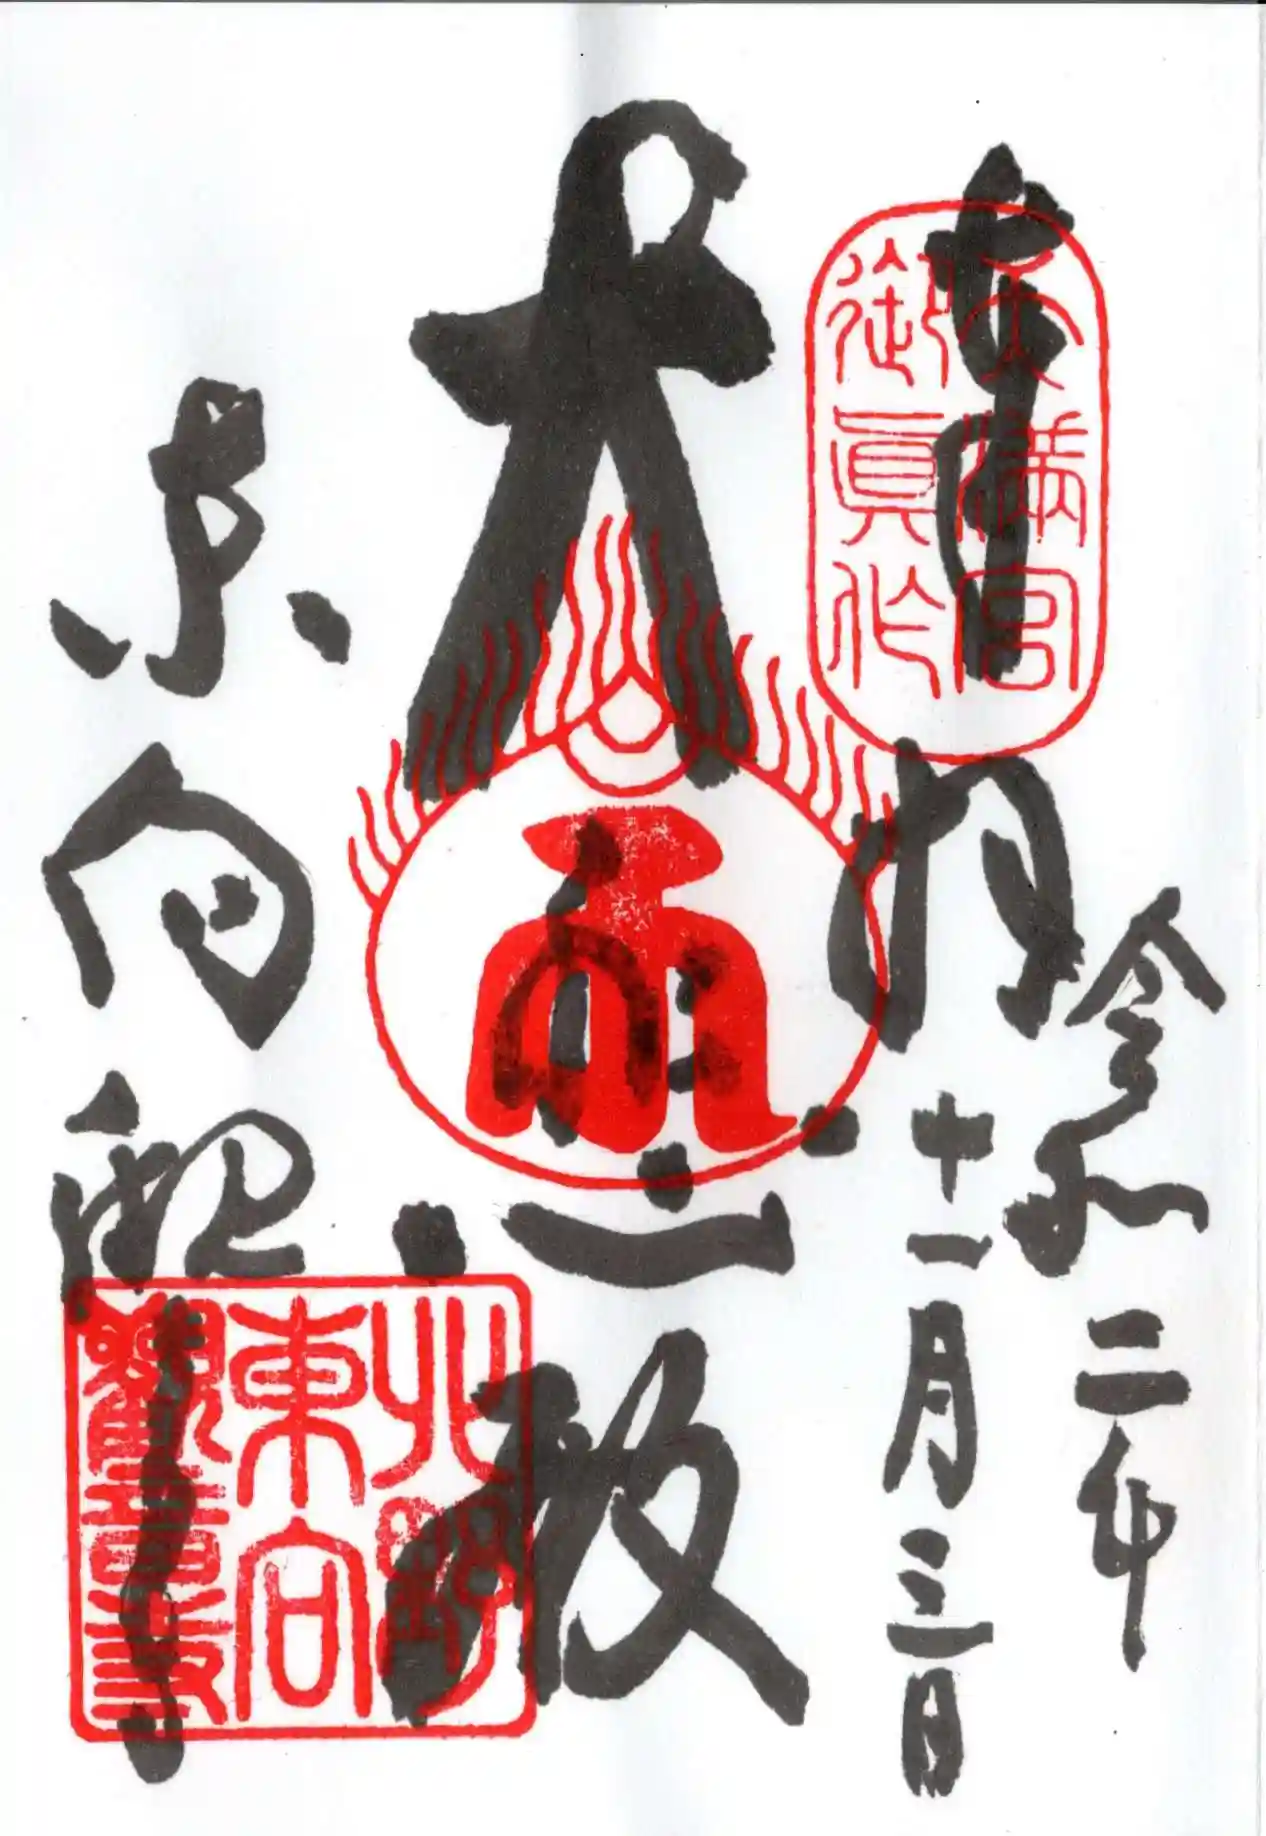 奉拝
令和二年
十一月三日
大悲殿
東向観音
天満宮
御真作
北野
東向
観音寺